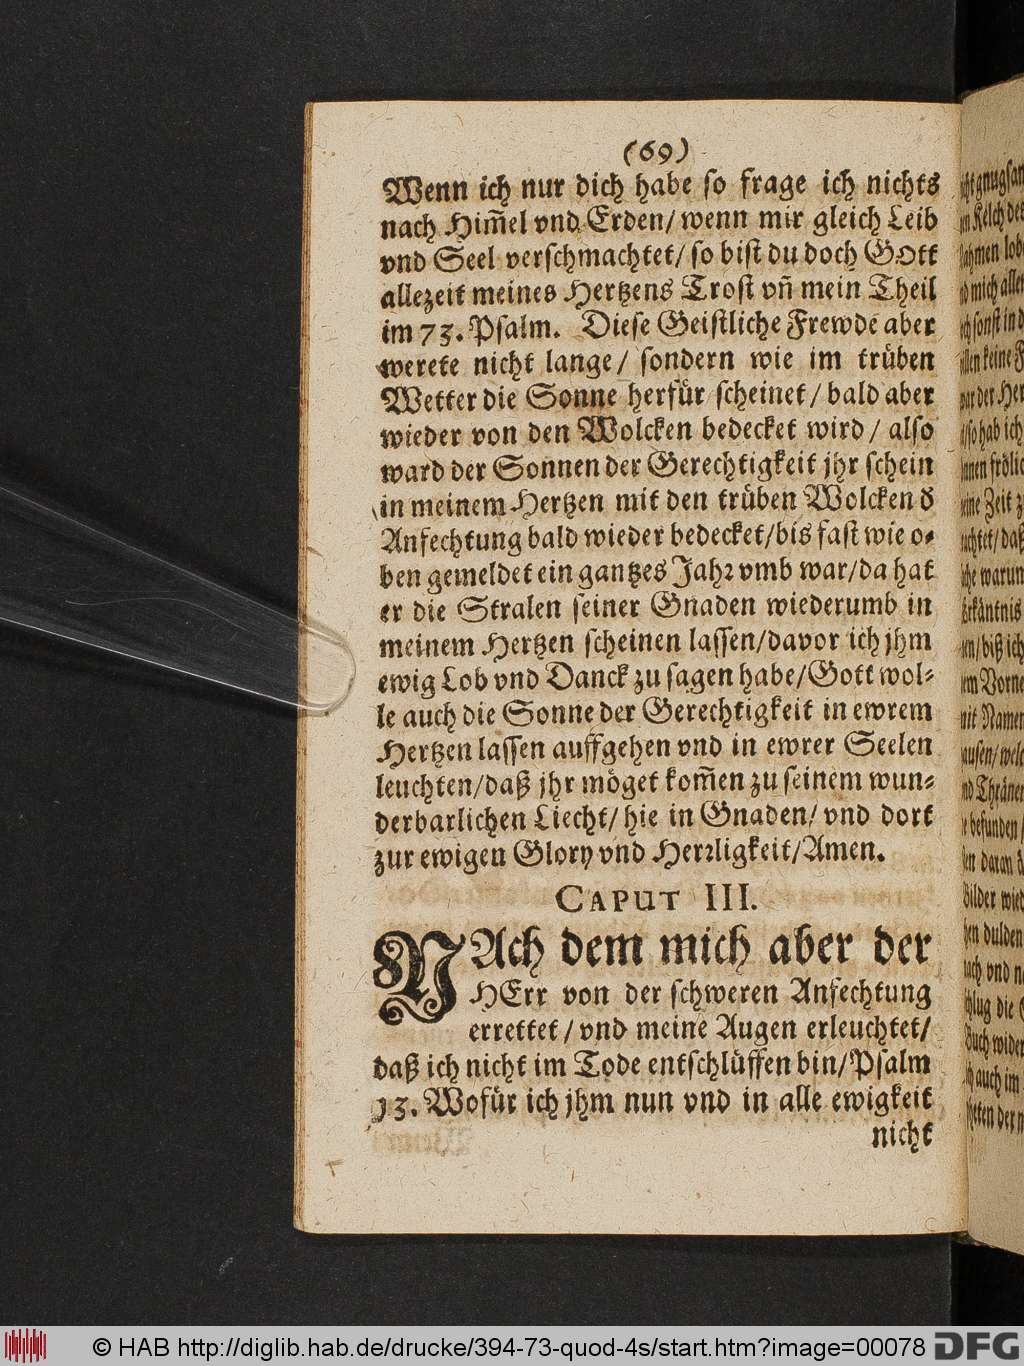 (69)
Wenn ich nur dich habe so frage ich nichts
nach Him̃el vnd Erden/ wenn mir gleich Leib
vnd Seel verschmachtet/ so bist du doch GOtt
allezeit meines Hertzens Trost vñ mein Theil
im 73. Psalm. Diese Geistliche Frewde aber
werete nicht lange/ sondern wie im trüben
Wetter die Sonne herfür scheinet/ bald aber
wieder von den Wolcken bedecket wird/ also
ward der Sonnen der Gerechtigkeit jhr schein
in meinem Hertzen mit den trüben Wolcken d
Anfechtung bald wieder bedecket/bis fast wie o-
ben gemeldet ein gantzes Jahr vmb war/da hat
er die Stralen seiner Gnaden wiederumb in
meinem Hertzen scheinen lassen/davor ich jhm
ewig Lob vnd Danck zu sagen habe/Gott wol-
le auch die Sonne der Gerechtigkeit in ewrem
Hertzen lassen auffgehen vnd in ewrer Seelen
leuchten/daß jhr möget kom̃en zu seinem wun-
derbarlichen Liecht/ hie in Gnaden/ vnd dort
zur ewigen Glory vnd Herrligkeit/Amen.
CAPUT III.
NAch dem mich aber der
HErr von der schweren Anfechtung
errettet/ vnd meine Augen erleuchtet/
daß ich nicht im Tode entschlüffen bin/Psalm
13. Wofür ich jhm nun vnd in alle ewigkeit
nicht
© HAB http://diglib.hab.de/drucke/394-73-quod-4s/start.htm?image=00078
DFG